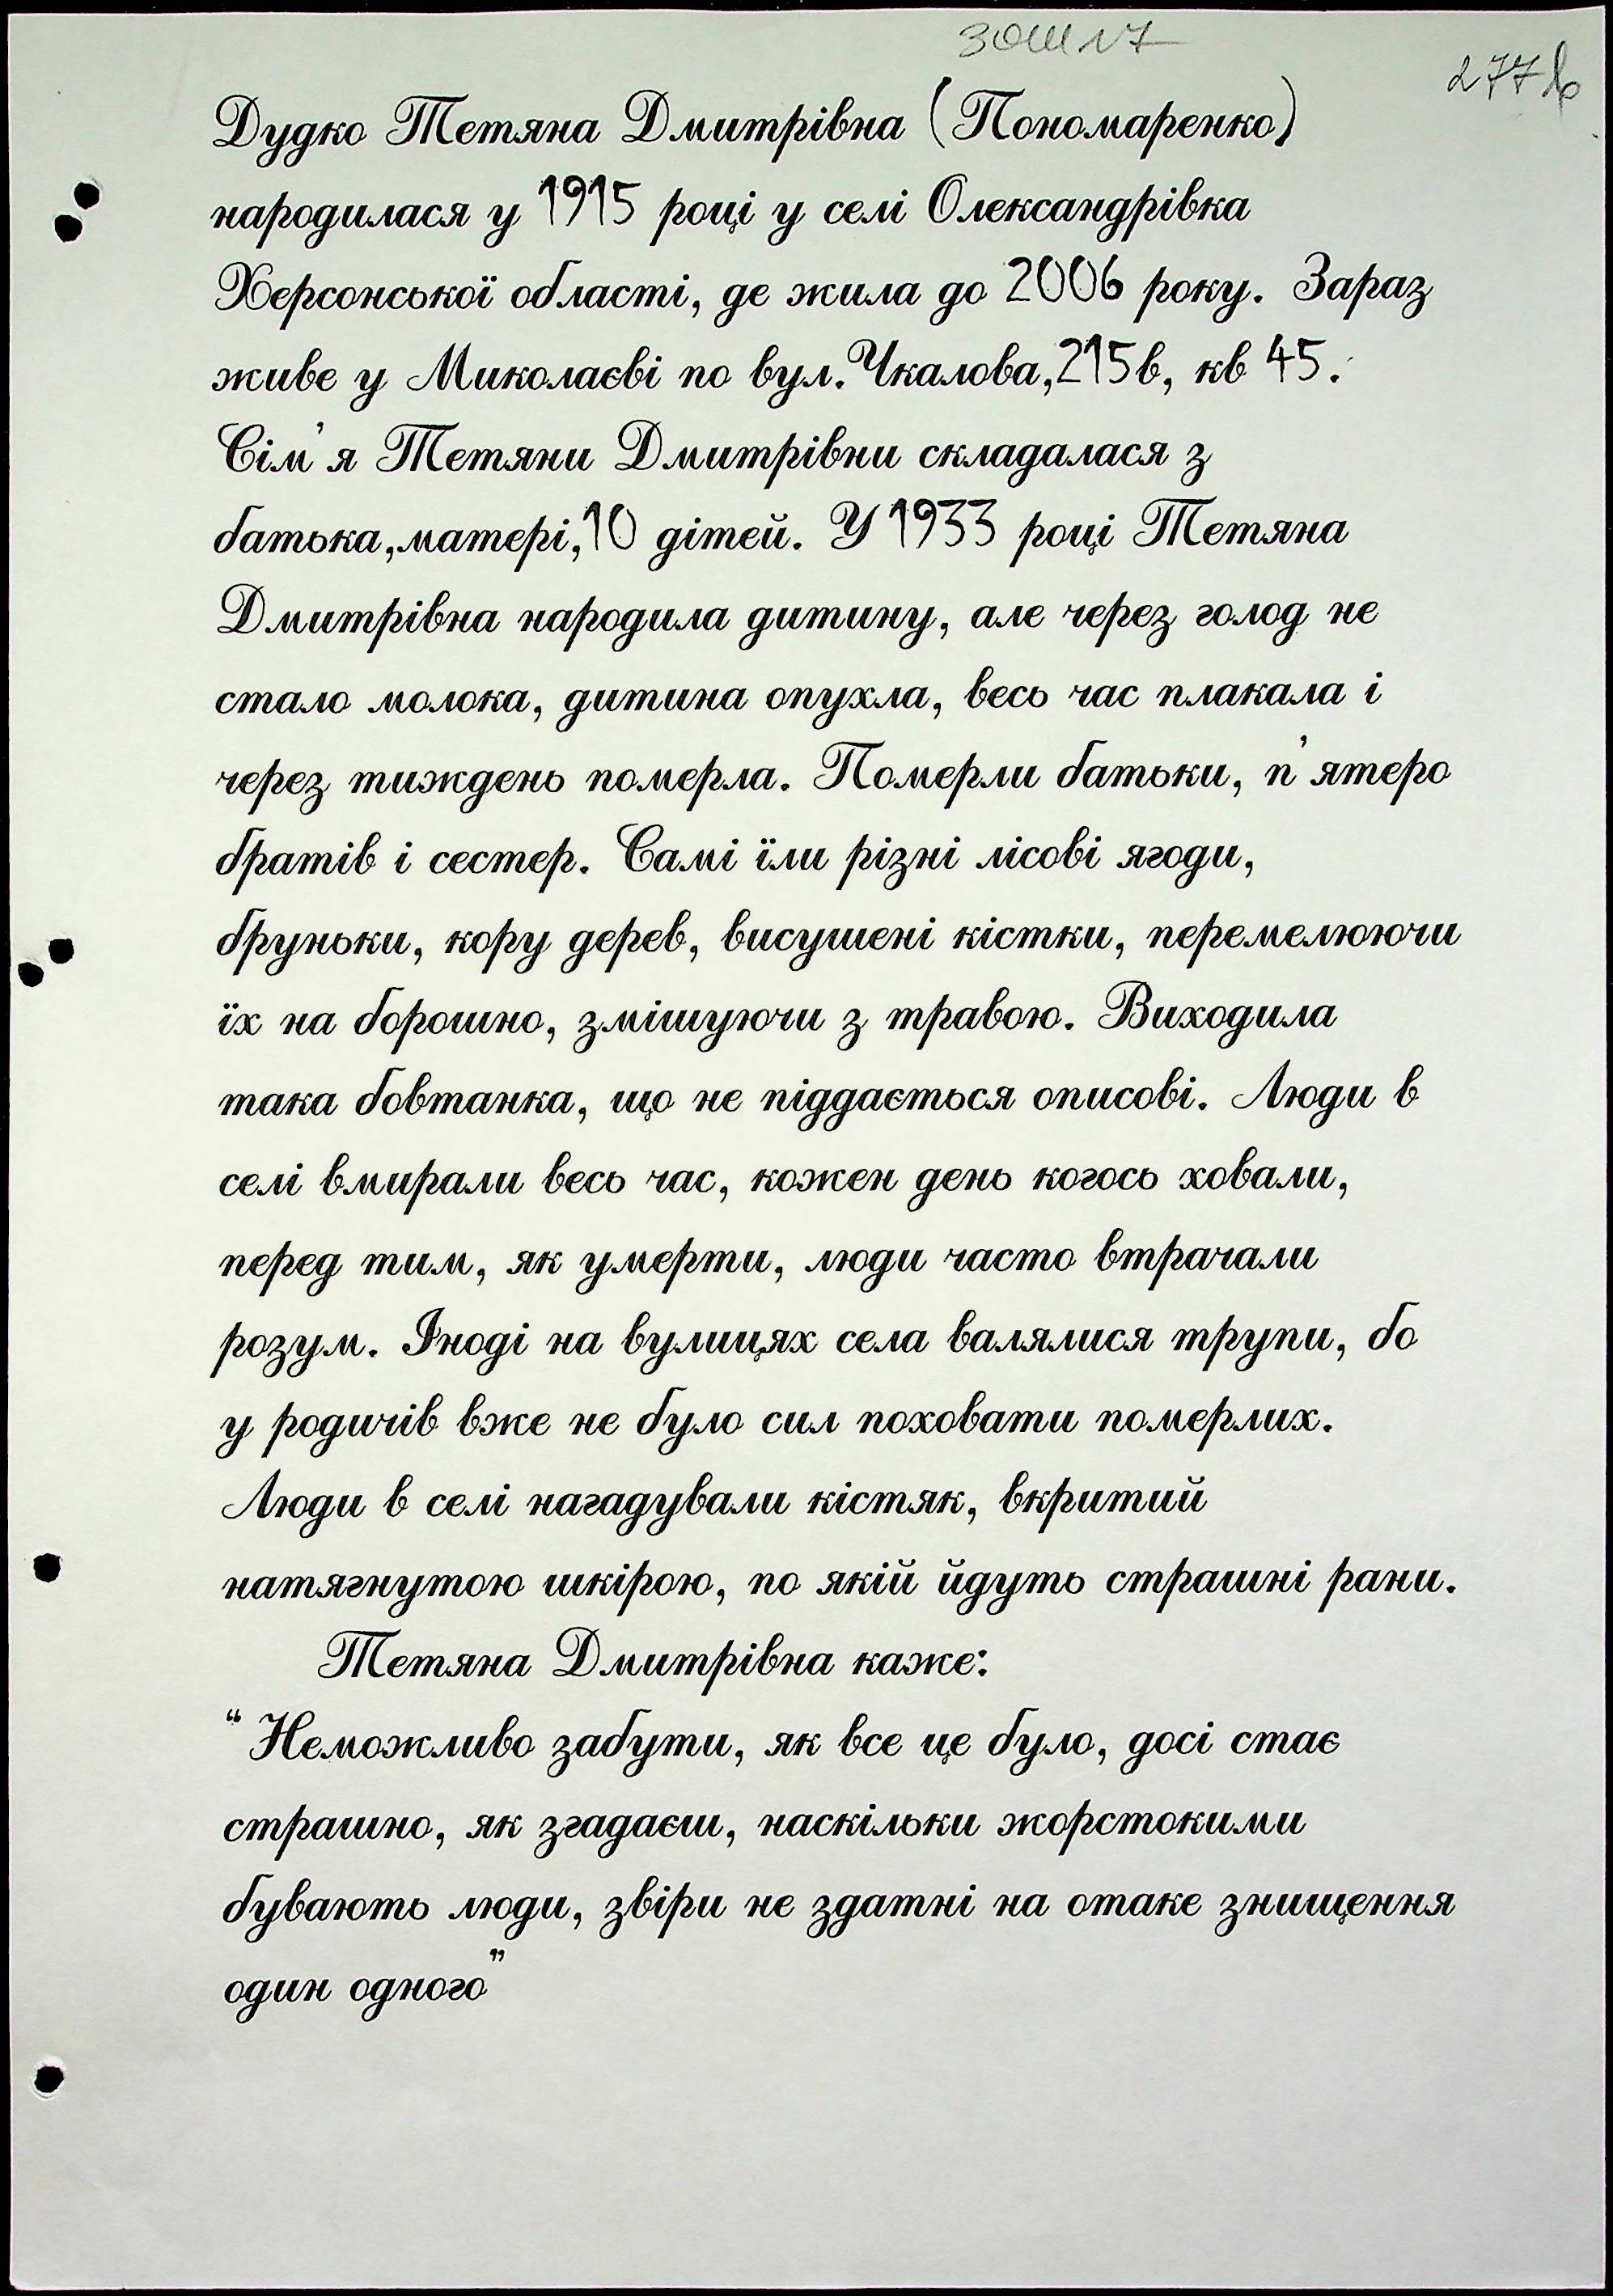 ЗОШ 17
277 в
Дудко Тетяна Дмитрівна (Пономаренко)
народилася у 1915 році у селі Олександрівка
Херсонської області, де жила до 2006 року. Зараз
живе у Миколаєві по вул. Чкалова, 215в, кв 45.
Сім'я Тетяни Дмитрівни складалася з
батька, матері, 10 дітей. У 1933 році Тетяна
Дмитрівна народила дитину, але через голод не
стало молока, дитина опухла, весь час плакала і
через тиждень померла. Померли батьки, п'ятеро
братів і сестер. Самі їли різні лісові ягоди,
бруньки, кору дерев, висушені кістки, перемелюючи
їх на борошно, змішуючи з травою. Виходила
така бовтанка, що не піддається описові. Люди в
селі вмирали весь час, кожен день когось ховали,
перед тим, як умерти, люди часто втрачали
розум. Іноді на вулицях села валялися трупи, бо
у родичів вже не було сил поховати померлих.
Люди в селі нагадували кістяк, вкритий
натягнутою шкірою, по якій йдуть страшні рани.
Тетяна Дмитрівна каже:
“Неможливо забути, як все це було, досі стає
страшно, як згадаєш, наскільки жорстокими
бувають люди, звіри не здатні на отаке знищення
один одного”